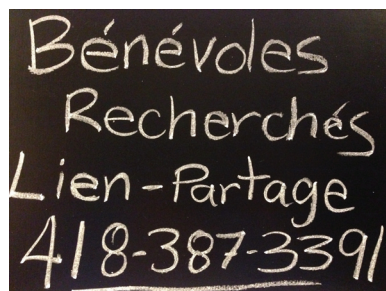 Bénévoles
Recherchés
Lien-Partage
418-387-3391